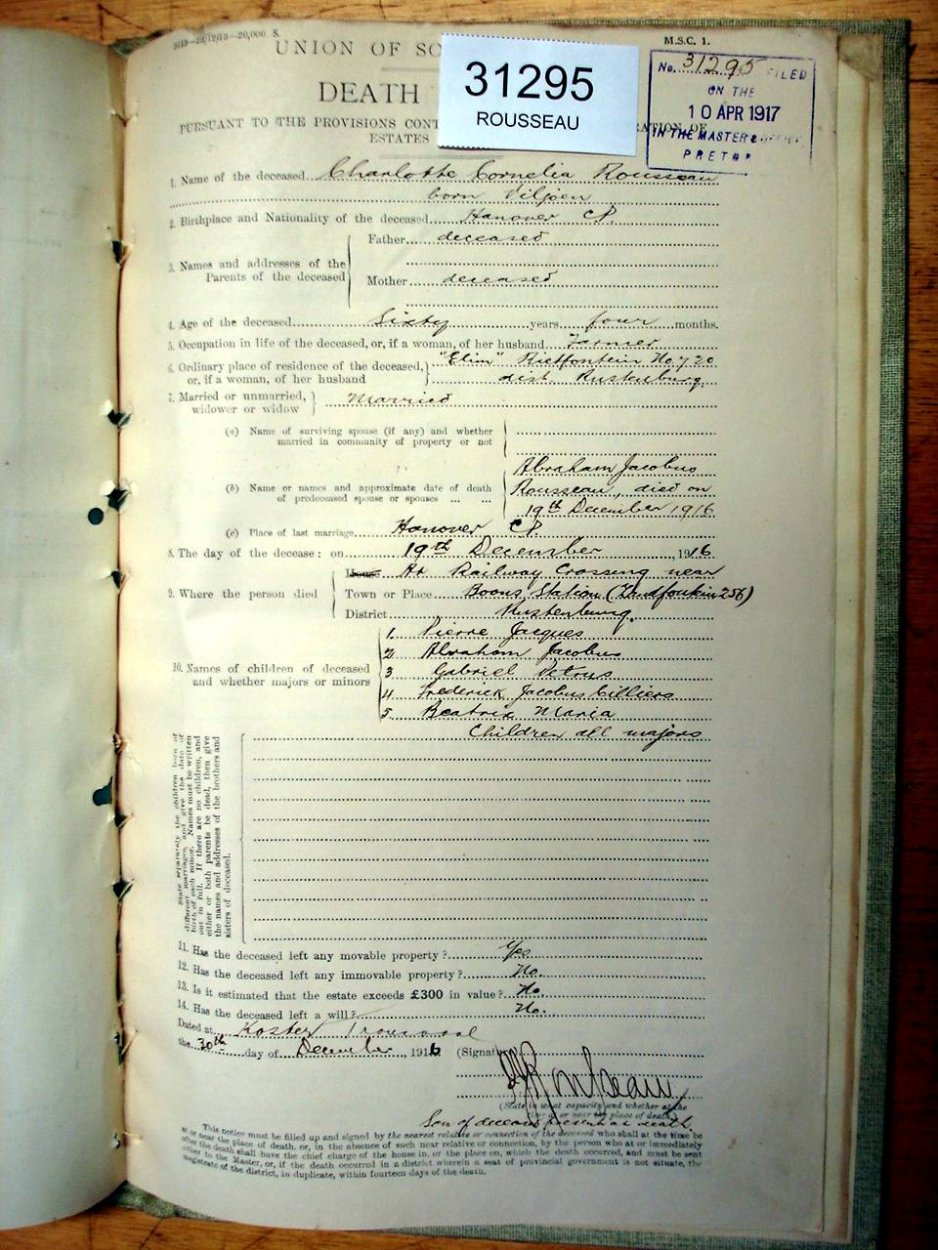 M.S.C. 1.
UNION OF SO
31295
ROUSSEAU
No. 31295 FILED
ON THE
10 APR 1917
IN THE MASTER'S OFFICE
PRETOR
DEATH
PURSUANT TO THE PROVISIONS CONT RATION OF
ESTATES
1. Name of the deceased Charlotte Cornelia Rousseau
born Viljoen
2. Birthplace and Nationality of the deceased Hanover CP.
3. Names and addresses of the Parents of the deceased
Father deceased
Mother deceased
4. Age of the deceased Sixty years four months.
5. Occupation in life of the deceased, or, if a woman, of her husband Farmer
6. Ordinary place of residence of the deceased, "Elim" Rietfontein No 720
or, if a woman, of her husband dist. Rustenburg
7. Married or unmarried, widower or widow Married
(a) Name of surviving spouse (if any) and whether
married in community of property or not
(b) Name or names and approximate date of death
of predeceased spouse or spouses ... ...
Abraham Jacobus
Rousseau, died on
19th December 1916
(c) Place of last marriage Hanover CP.
8. The day of the decease: on 19th December, 1916
9. Where the person died
House At Railway Crossing near
Town or Place Boons Station
District Rustenburg.
10. Names of children of deceased
and whether majors or minors
1. Pierre Jacques
2 Abraham Jacobus
3 Gabriel Petrus
4 Frederick Jacobus Cilliers
5 Beatrix Maria
Children all majors
State separately the children born of
different marriages, and give the date of
birth of each minor. Names must be written
out in full. If there are no children, and
either or both parents be dead, then give
the names and addresses of the brothers and
sisters of deceased.
11. Has the deceased left any movable property? Yes
12. Has the deceased left any immovable property? No.
13. Is it estimated that the estate exceeds £300 in value? No.
14. Has the deceased left a will? No.
Dated at Koster Transvaal
the 30th day of December, 1916 (Signat
Rousseau
(State in what capacity and whether at the
or near the place of death)
Son of deceased present at death.
This notice must be filled up and signed by the nearest relative or connection of the deceased who shall at the time be
at or near the place of death, or, in the absence of such near relative or connection, by the person who at or immediately
after the death shall have the chief charge of the house in, or the place on, which the death occurred, and must be sent
either to the Master, or, if the death occurred in a district wherein a seat of provincial government is not situate, the
magistrate of the district, in duplicate, within fourteen days of the death.